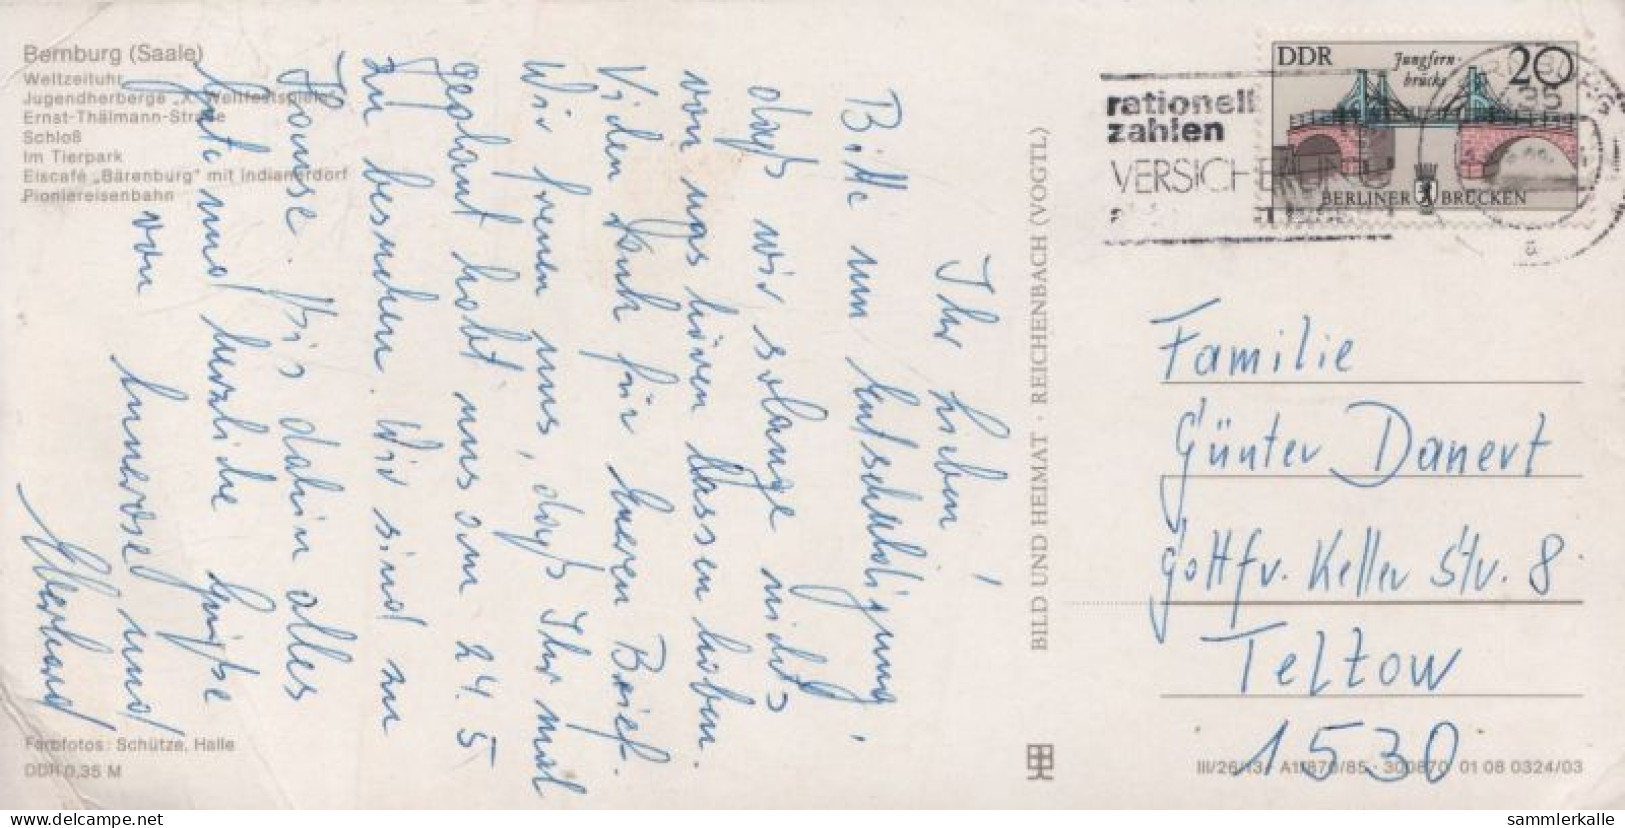 Bernburg (Saale)
Weltzeituhr
Jugendherberge „X. Weltfestspiele“
Ernst-Thälmann-Straße
Schloß
Im Tierpark
Eiscafé „Bärenburg“ mit Indianerdorf
Pioniereisenbahn
Ihr Lieben!
Bitte um Entschuldigung,
daß wir solange nichts
von uns hören lassen haben.
Vielen Dank für Eueren Brief.
Wir freuen uns, daß Ihr mal
geplant habt uns am 24.5
zu besuchen. Wir sind zu
Hause. Bis dahin alles
Gute und herzliche Grüße
von Annerose und
Eberhard
Farbfotos: Schütze, Halle
DDR 0,35 M
BILD UND HEIMAT · REICHENBACH (VOGTL)
rationell
zahlen
DDR
Jungfern-
brücke
20
BERLINER BRÜCKEN
35
a
Familie
Günter Danert
Gottfr. Keller Str. 8
Teltow
1530
III/26/13/ A1/870/85 · 300870 01 08 0324/03
www.delcampe.net
sammlerkalle